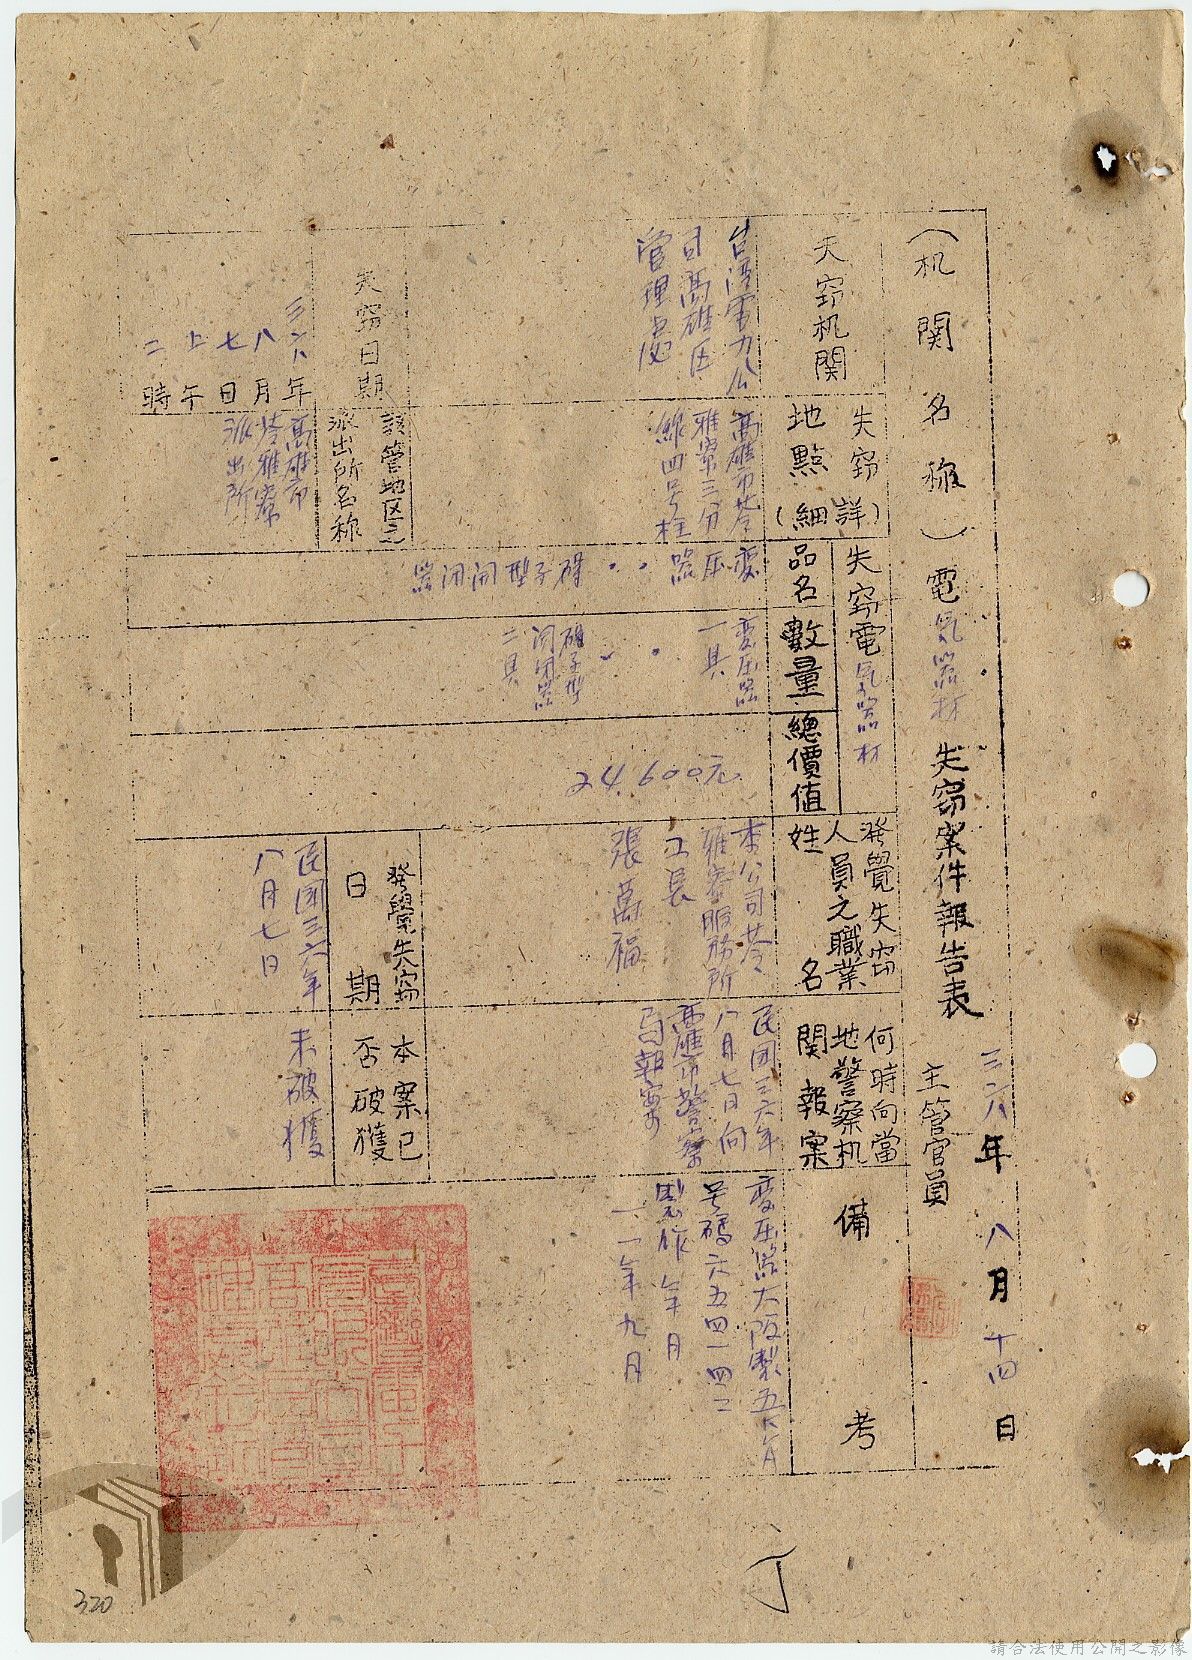 （机関名称）電気器材失窃案件報告表
三六年八月十四日
主管官員
失窃机関
台湾電力公
司高雄区
管理處
失窃
地點（詳細）
高雄市苓
雅寮三分
線四号柱
失窃電気器材
品名
變压器
碍子型開閉器
數量
變压器
一具
碍子型
開閉器
二具
總價值
24,600元
發覺失窃
人員之職業
姓名
本公司苓
雅寮服務所
工長
張萬福
何時向當
地警察机
関報案
民国三六年
八月七日向
高雄市警察
局報案
備考
變压器大阪製五
号碼六五四一四二
製作年月
一一年九月
失窃日期
三六年
八月
七日
上午
二時
該管地区之
派出所名称
高雄市
苓雅寮
派出所
發覺失窃
日期
民国三六年
八月七日
本案已
否破獲
未破獲
丁
320
請合法使用公開之影像